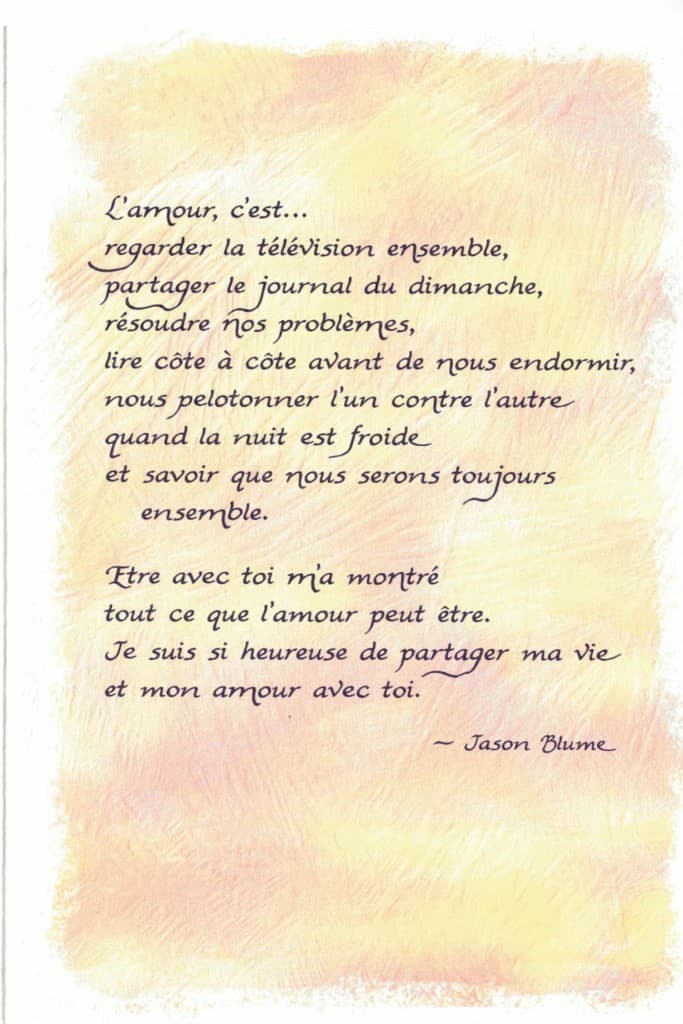 L'amour, c'est...
regarder la télévision ensemble,
partager le journal du dimanche,
résoudre nos problèmes,
lire côte à côte avant de nous endormir,
nous pelotonner l'un contre l'autre
quand la nuit est froide
et savoir que nous serons toujours
ensemble.
Etre avec toi m'a montré
tout ce que l'amour peut être.
Je suis si heureuse de partager ma vie
et mon amour avec toi.
~ Jason Blume